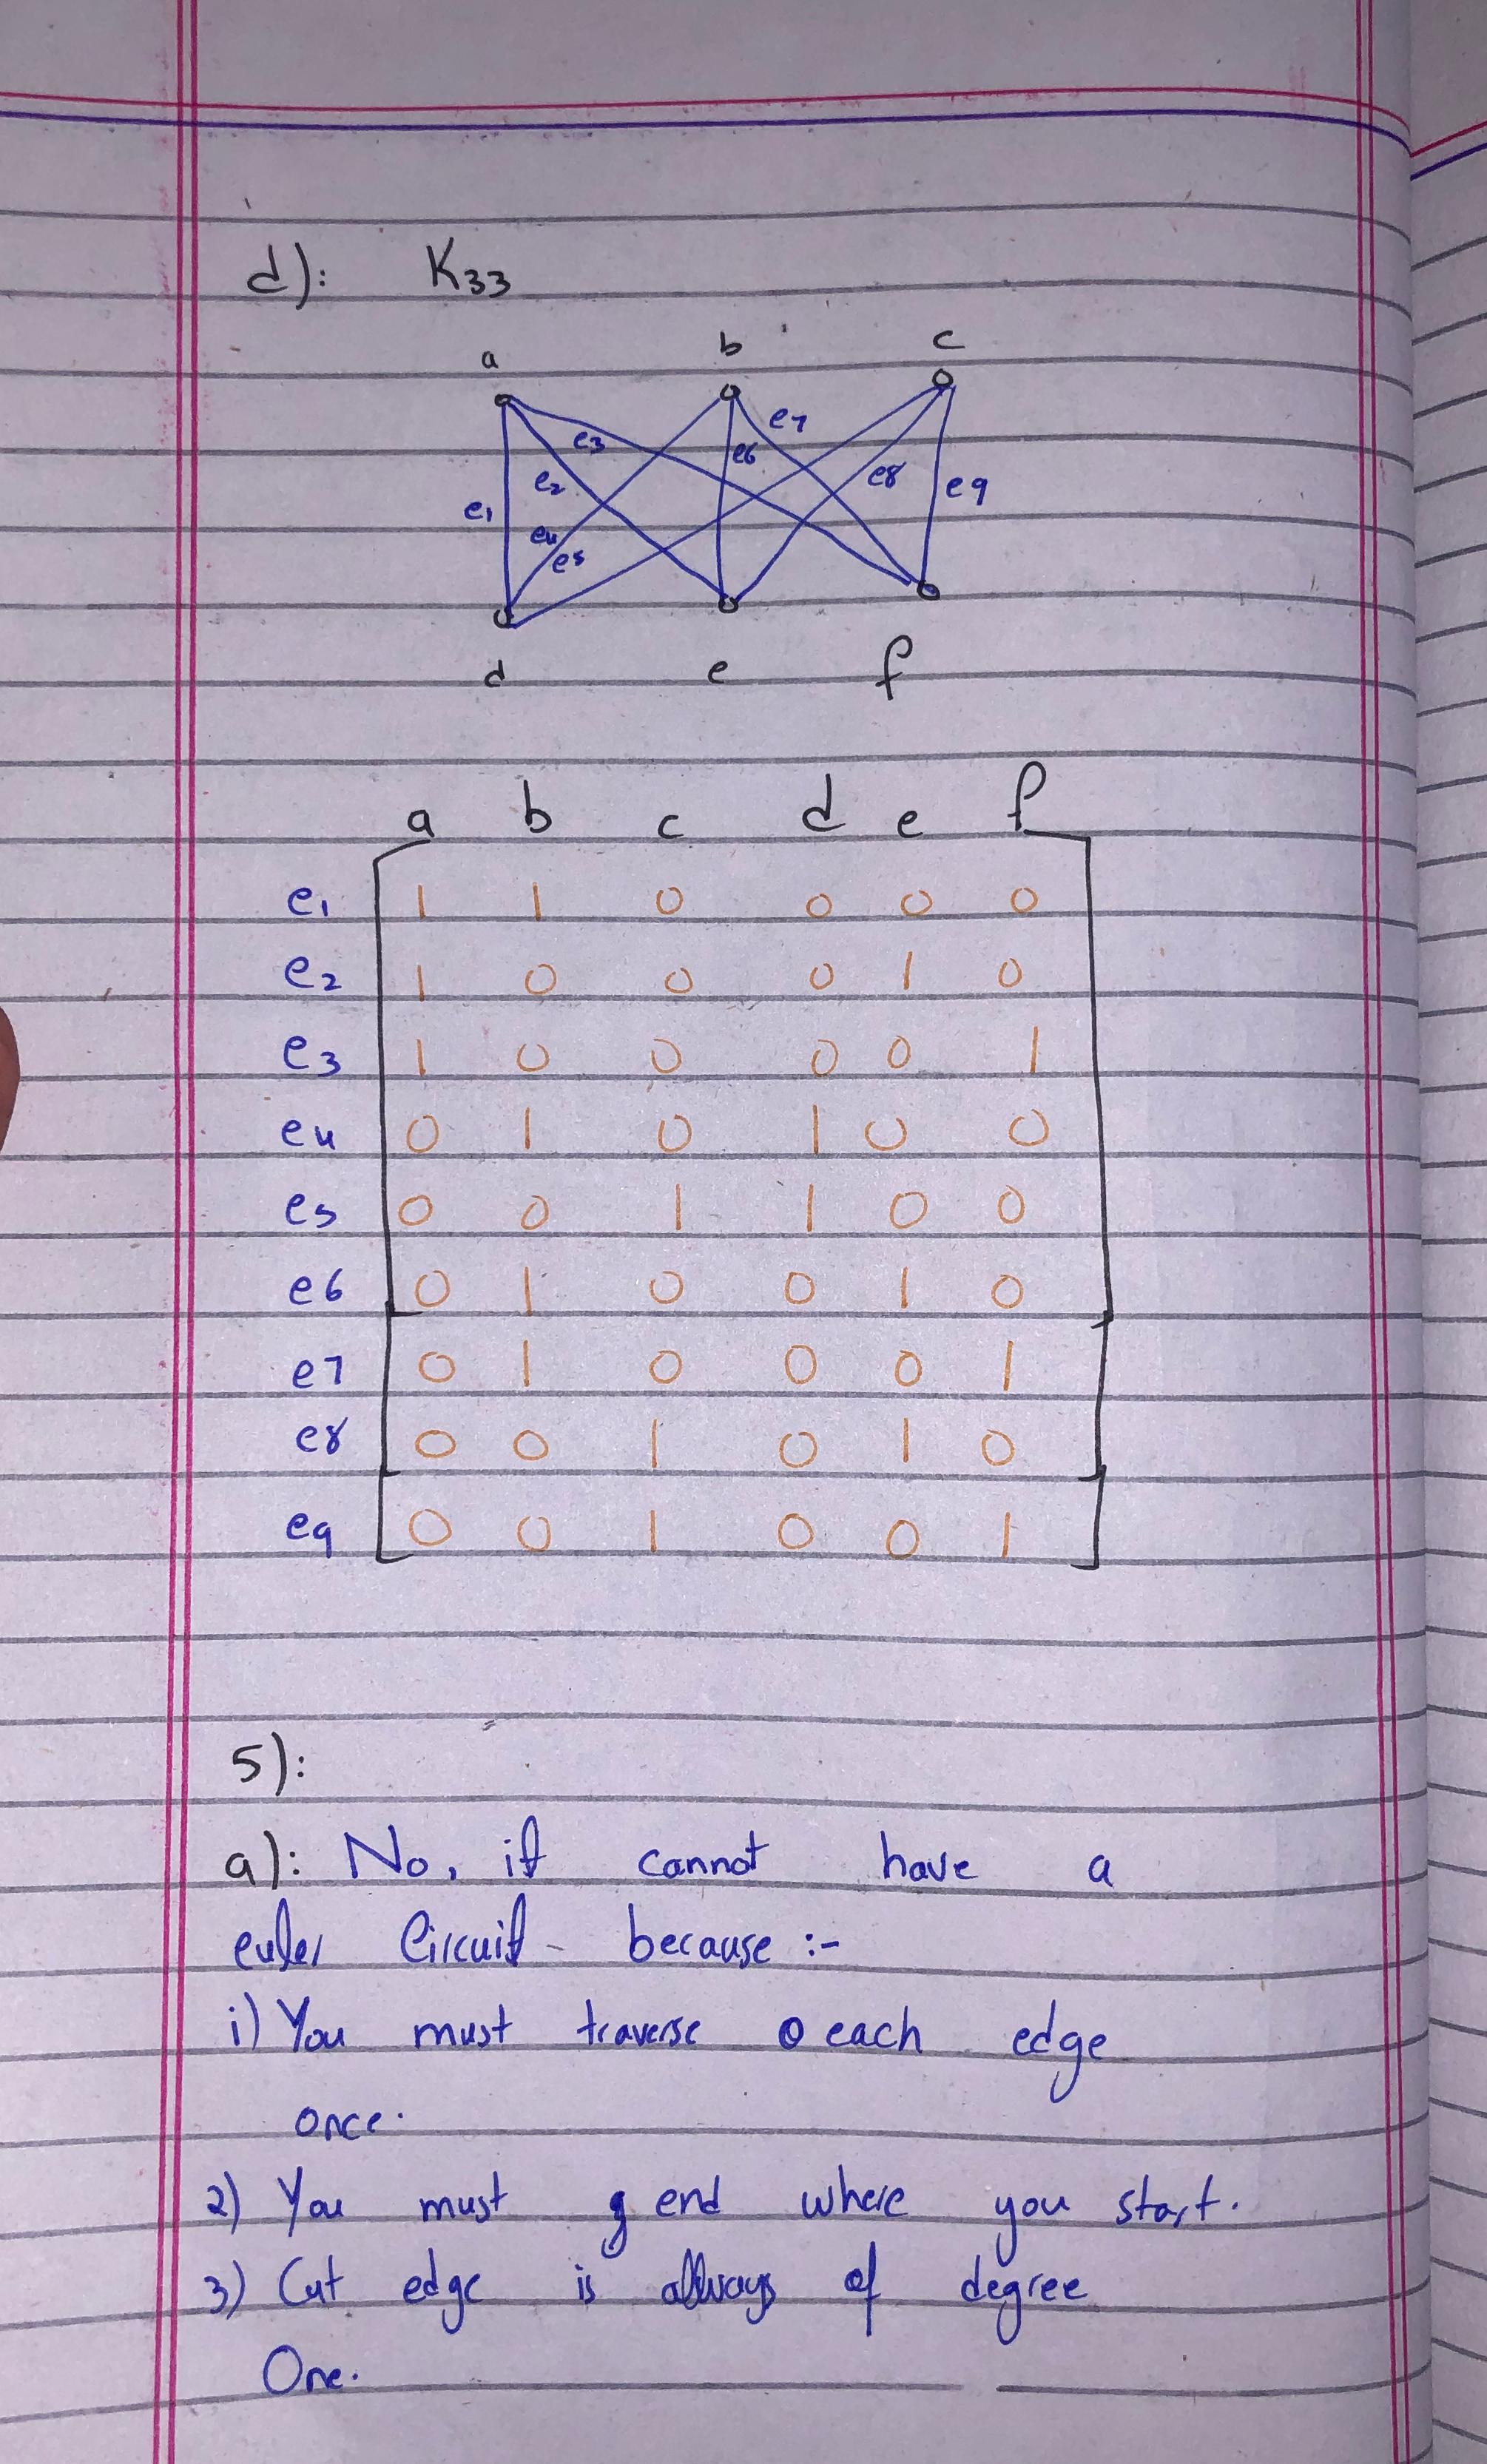 d): K33
a b c
e3 e7
e6
e2 e8 e9
e1
e4
e5
d e f
a b c d e f
e1 1 1 0 0 0 0
e2 1 0 0 0 1 0
e3 1 0 0 0 0 1
e4 0 1 0 1 0 0
e5 0 0 1 1 0 0
e6 0 1 0 0 1 0
e7 0 1 0 0 0 1
e8 0 0 1 0 1 0
e9 0 0 1 0 0 1
5):
a): No, it cannot have a
euler Circuit because :-
i) You must traverse each edge
once.
2) You must end where you start.
3) Cut edge is allways of degree
One.